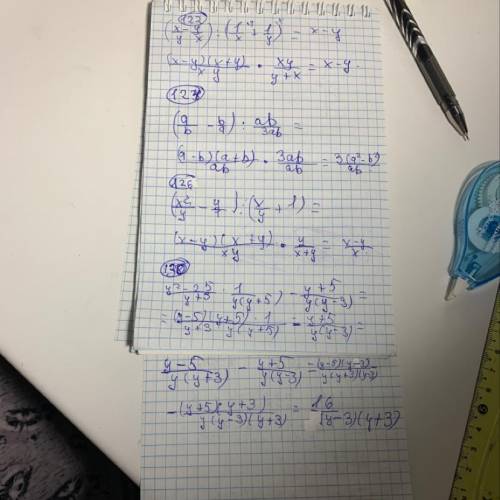 123
(x/y - y/x) : (1/x + 1/y) = x - y
(x-y)(x+y)/xy · xy/y+x = x-y.
124
(a/b - b/a) : ab/3ab =
(a-b)(a+b)/ab · 3ab/ab = 3(a²-b²)/ab
126
: (x/y + 1) =
(x-y)(x+y)/xy · y/x+y = x-y/x
130
y²-25/y+3 · 1/y(y+5) - y+5/y(y-3) =
= (y-5)(y+5)·1/y+3 y(y+5) - y+5/y(y-3) =
y-5/y(y+3) - y+5/y(y-3) = (y-5)(y-3)/y(y+3)(y-3)
-(y+5)(y+3)/y(y-3)(y+3) = 16/(y-3)(y+3)